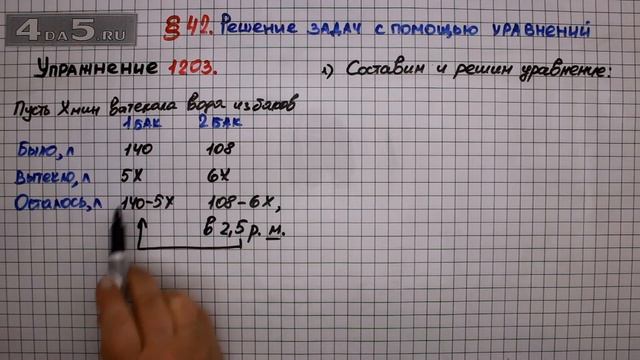 4DA5.RU
§ 42. Решение задач с помощью уравнений
Упражнение 1203.
1) Составим и решим уравнение:
Пусть X мин вытекала вода из баков
1 БАК 2 БАК
Было, л 140 108
Вытекло, л 5X 6X
Осталось, л 140-5X 108-6X,
в 2,5 р. м.